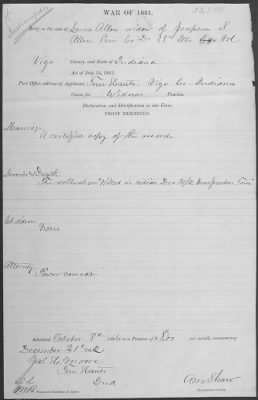 WAR OF 1861.
Brief in the case of Laura Allen widow of Josephus S.
Allen Priv Co "D" 88th Ills Vol
Vigo County, and State of Indiana
Act of July 14, 1862.
Post Office address of Applicant, Terre Haute Vigo Co Indiana
Claim for Widow Pension.
Declaration and Identification in due Form.
PROOF EXHIBITED.
Marriage
A certified copy of the record
Service & Death
The rolls show "Killed in action Dec 31/62 Murfreesboro Tenn"
Children
None
Attorney
Power correct
Admitted October 8th to a Pension of $8.00 per month, commencing
December 31st 1862
Terre Haute
Ind